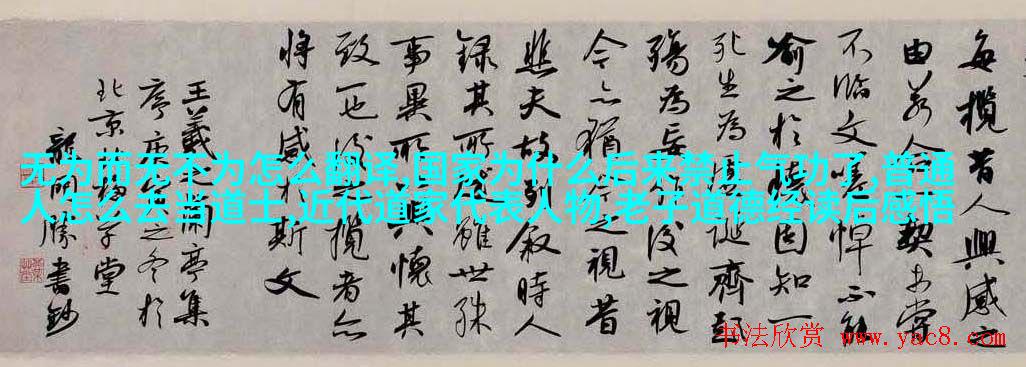 每攬昔人興感之
由若合一契未嘗
不臨文嗟悼不能
喻之於懷固知一
死生為虛誕齊彭
殤為妄作後之視
今亦猶今之視昔
悲夫故列敘時人
錄其所述雖世殊
事異所以興懷其
致一也後之攬者亦
將有感於斯文
王羲之蘭亭集
序庚寅之冬於
北京學堂
龍開勝書鈔
无为而无不为怎么翻译,国家为什么后来禁止气功了,普通
人怎么去当道士,近代道家代表人物,老子道德经读后感悟
书法欣赏 www.yac8.com